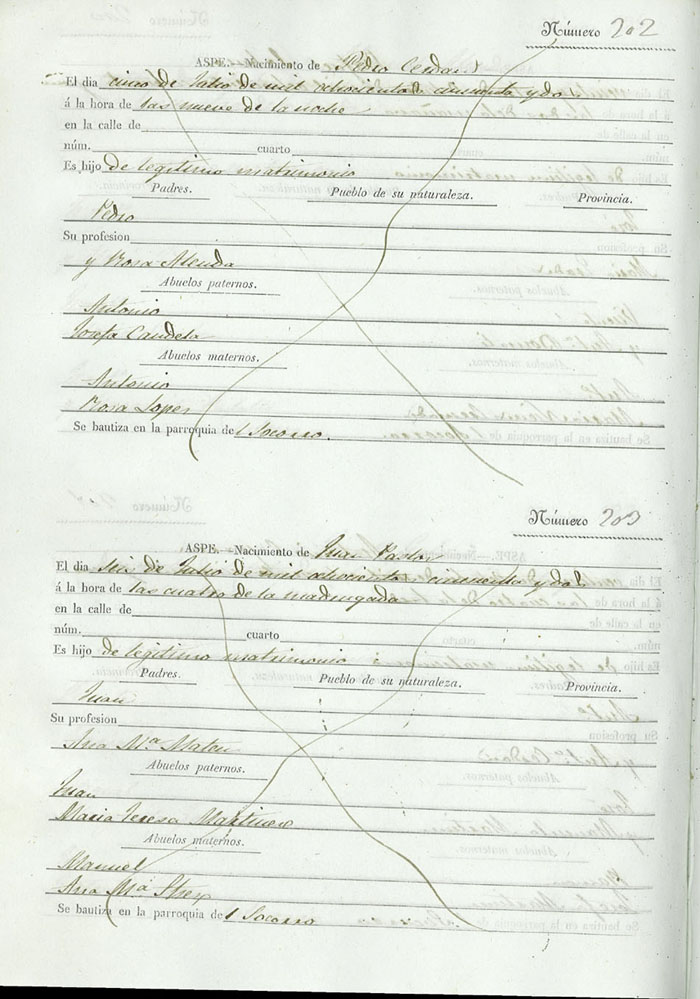 Número 202
ASPE.—Nacimiento de Pedro Cerdan
El dia cinco de Julio de mil ochocientos cincuenta y dos
á la hora de las nueve de la noche
en la calle de
núm. cuarto
Es hijo de legitimo matrimonio
Padres. Pueblo de su naturaleza. Provincia.
Pedro
Su profesion
y Rosa Alenda
Abuelos paternos.
Antonio
Josefa Candela
Abuelos maternos.
Antonio
Rosa Lopez
Se bautiza en la parroquia del Socorro.
Número 203
ASPE.—Nacimiento de Juan
El dia seis de Julio de mil ochocientos cincuenta y dos
á la hora de las cuatro de la madrugada
en la calle de
núm. cuarto
Es hijo de legitimo matrimonio
Padres. Pueblo de su naturaleza. Provincia.
Juan
Su profesion
Ana Mª Mateu
Abuelos paternos.
Juan
Maria Teresa Martinez
Abuelos maternos.
Manuel
Ana Mª
Se bautiza en la parroquia del Socorro